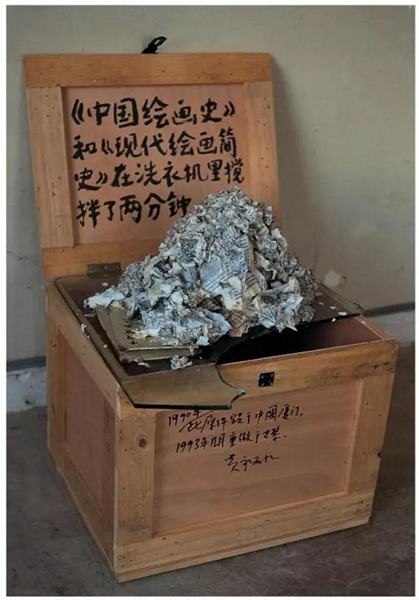 《中国绘画史》
和《现代绘画简
史》在洗衣机里搅
拌了两分钟
1990年 此原件毁于中国厦门,
1993年 重做于
黄永砯